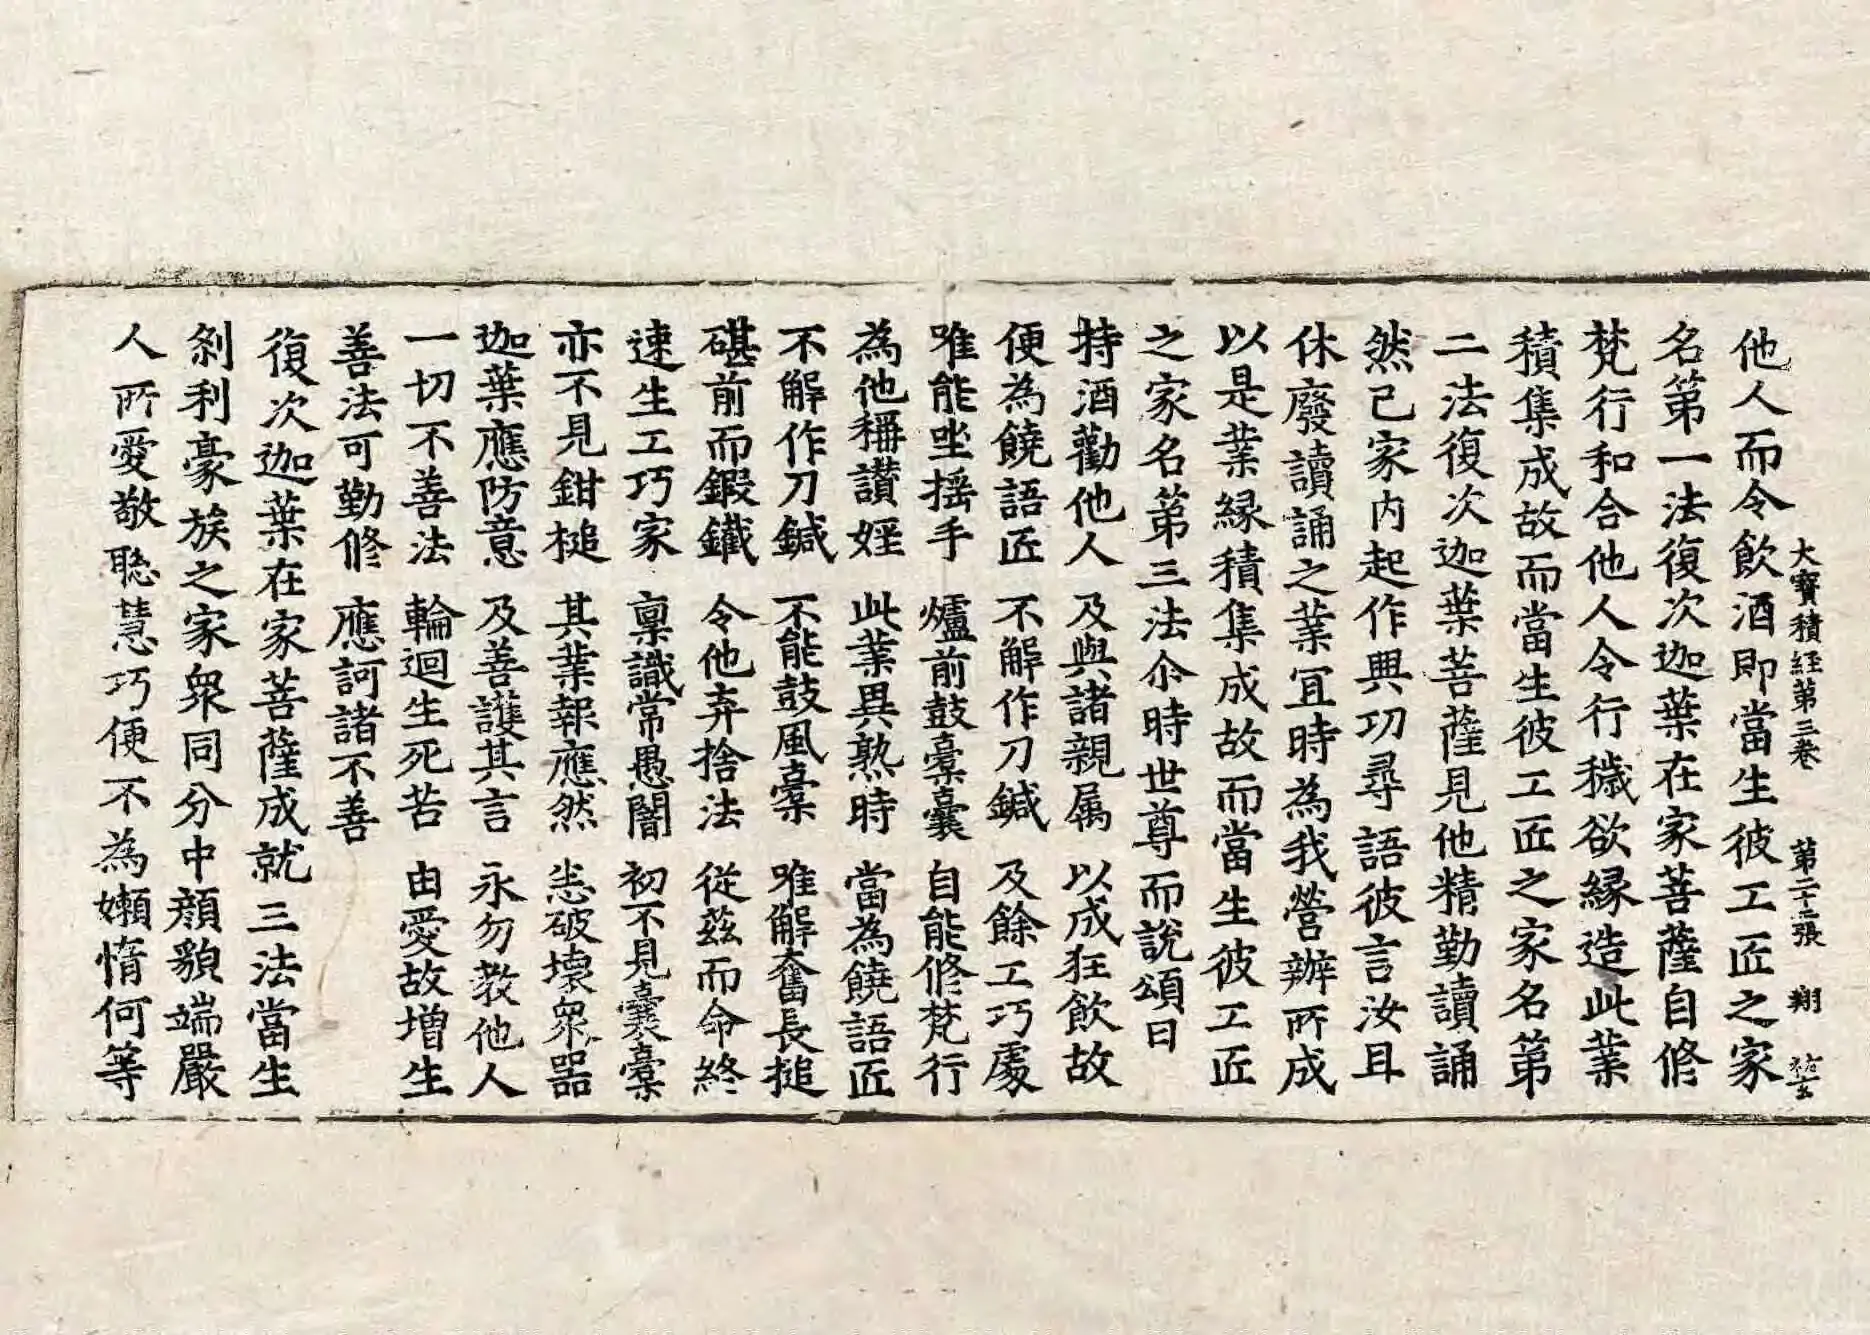 大寶積經第三卷 第二十二張 翔
他人而令飲酒即當生彼工匠之家
名第一法復次迦葉在家菩薩自修
梵行和合他人令行穢欲緣造此業
積集成故而當生彼工匠之家名第
二法復次迦葉菩薩見他精勤讀誦
然已家內起作興功尋語彼言汝且
休廢讀誦之業冝時為我營辦所成
以是業緣積集成故而當生彼工匠
之家名第三法尒時世尊而說頌曰
持酒勸他人 及與諸親属 以成狂飲故
便為饒語匠 不解作刀鍼 及餘工巧處
唯能坐搖手 爐前鼓橐囊 自能修梵行
為他稱讃婬 此業異熟時 當為饒語匠
不解作刀鍼 不能鼓風橐 唯解奮長搥
碪前而鍛鐵 令他弃捨法 從茲而命終
速生工巧家 禀識常愚闇 初不見囊橐
亦不見鉗槌 其業報應然 恚破壞衆器
迦葉應防意 及善護其言 永勿教他人
一切不善法 輪迴生死苦 由愛故增生
善法可勤修 應訶諸不善
復次迦葉在家菩薩成就三法當生
剎利豪族之家衆同分中顏貌端嚴
人所愛敬聦慧巧便不為嬾惰何等